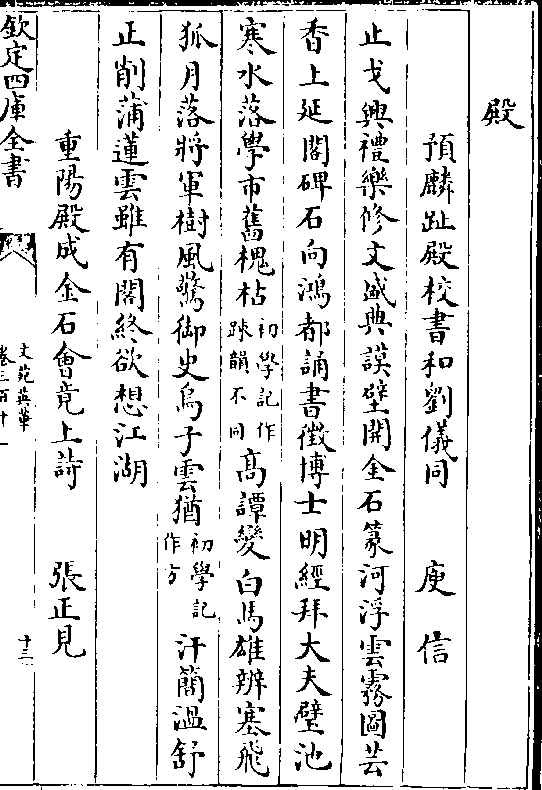 殿
預麟趾殿校書和劉儀同 庾信
止戈興禮樂修文盛典謨壁開金石篆河浮雲霧圖芸
香上延閣碑石向鴻都誦書徵博士明經拜大夫璧池
寒水落學市舊槐枯初學記作踈韻不同高譚變白馬雄辨塞飛
狐月落將軍樹風驚御史烏子雲猶初學記作方汗簡溫舒
正削蒲蓮雲雖有閣終欲想江湖
重陽殿成金石會竟上詩 張正見
欽定四庫全書
文苑英華
卷三百十一
十三